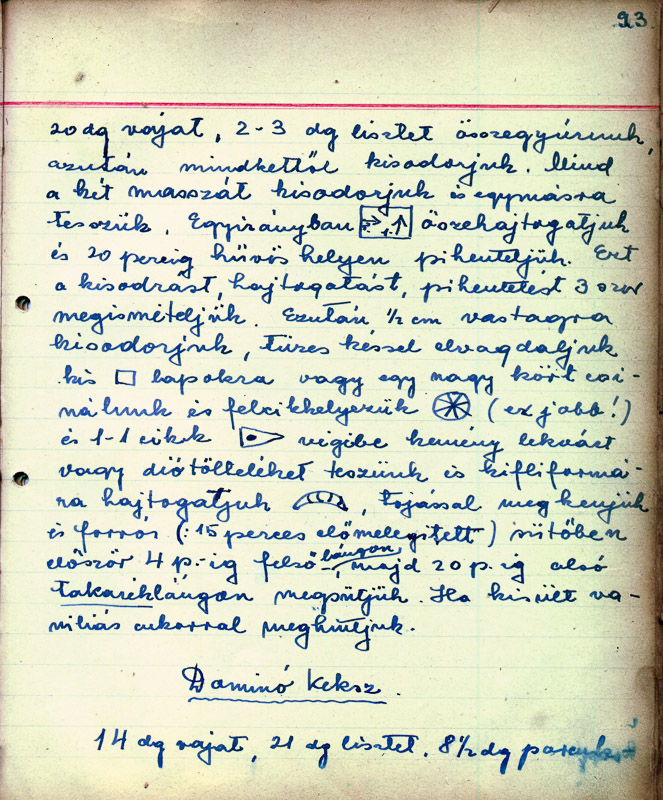 93.
20 dg vajat, 2-3 dg lisztet összegyúrunk,
azután mindkettőt kisodorjuk. Mind
a két masszát kisodorjuk és egymásra
tesszük. Egyirányban összehajtogatjuk
és 20 percig hűvös helyen pihentetjük. Ezt
a kisodrást, hajtogatást, pihentetést 3 szor
megismételjük. Ezután, 1/2 cm vastagra
kisodorjuk, tüzes késsel elvagdaljuk
kis lapokra vagy egy nagy kört csi-
nálunk és felcikkhelyezük (ez jobb!)
és 1-1 cikk végibe kemény lekvárt
vagy diótölteléket teszünk és kifliformá-
ra hajtogatjuk, tojással megkenjük
és forró (: 15 perces előmelegített) sütőben
először 4 p.-ig felső-lángon, majd 20 p.-ig alsó
takaréklángon megsütjük. Ha kisült va-
níliás cukorral meghintjuk.
Dominó Keksz.
14 dg vajat, 21 dg lisztet, 8 1/2 dg